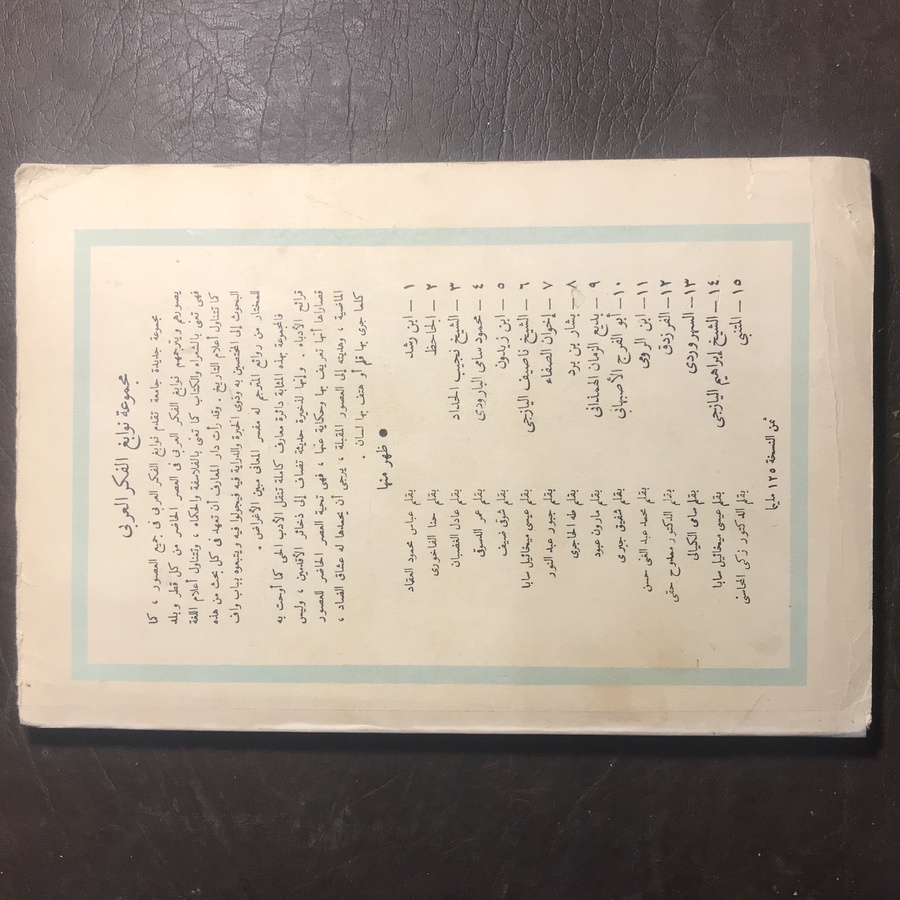 مجموعة نوابغ الفكر العربى
مجموعة جديدة جامعة تقدم نوابغ الفكر العربى فى جميع العصور ، كما
يصورهم ويترجمهم نوابغ الفكر العربى فى العصر الحاضر من كل قطر وبلد
فهى تعنى بالشعراء والكتاب كما تعنى بالفلاسفة والحكماء ، وتتناول أعلام اللغة
كما تتناول أعلام التاريخ . وقد رأت دار المعارف أن تعهد فى كل بحث من هذه
البحوث إلى المختصين به وذوى الخبرة والدراية فيه فيجولوا فيه ويتبعوه بباب واف
للمختار من روائع المترجم له مفسر المعانى مبين الأغراض .
فالمجموعة بهذه المثابة دائرة معارف كاملة تنقل الأدب الحى كما أوحت به
قرائح الأدباء . وإنها لذخيرة حديثة تضاف إلى ذخائر الأقدمين ، وليس
قصاراها أنها تعريف بها وحكاية عنها ، فهى تحية العصر الحاضر للعصور
الماضية ، وهديته إلى العصور المقبلة ، يرجى أن يحمدها له عشاق الضاد ،
كلما جرى بها قلم أو هتف بها لسان .
● ظهر منها
١ – ابن رشد بقلم عباس محمود العقاد
٢ – الجاحظ بقلم حنا الفاخورى
٣ – الشيخ نجيب الحداد بقلم عادل الغضبان
٤ – محمود سامى البارودى بقلم عمر الدسوقى
٥ – ابن زيدون بقلم شوقى ضيف
٦ – الشيخ ناصيف اليازجى بقلم عيسى ميخائيل سابا
٧ – إخوان الصفاء بقلم جبور عبد النور
٨ – بشار بن برد بقلم طه الحاجرى
٩ – بديع الزمان الهمذانى بقلم مارون عبود
١٠ – أبو الفرج الأصبهانى بقلم شفيق جبرى
١١ – ابن الرومى بقلم محمد عبد الغنى حسن
١٢ – الفرزدق بقلم الدكتور ممدوح حقى
١٣ – السهروردى بقلم سامى الكيالى
١٤ – الشيخ إبراهيم اليازجى بقلم عيسى ميخائيل سابا
١٥ – المتنبى بقلم الدكتور زكى المحاسنى
ثمن النسخة ١٢٥ مليما